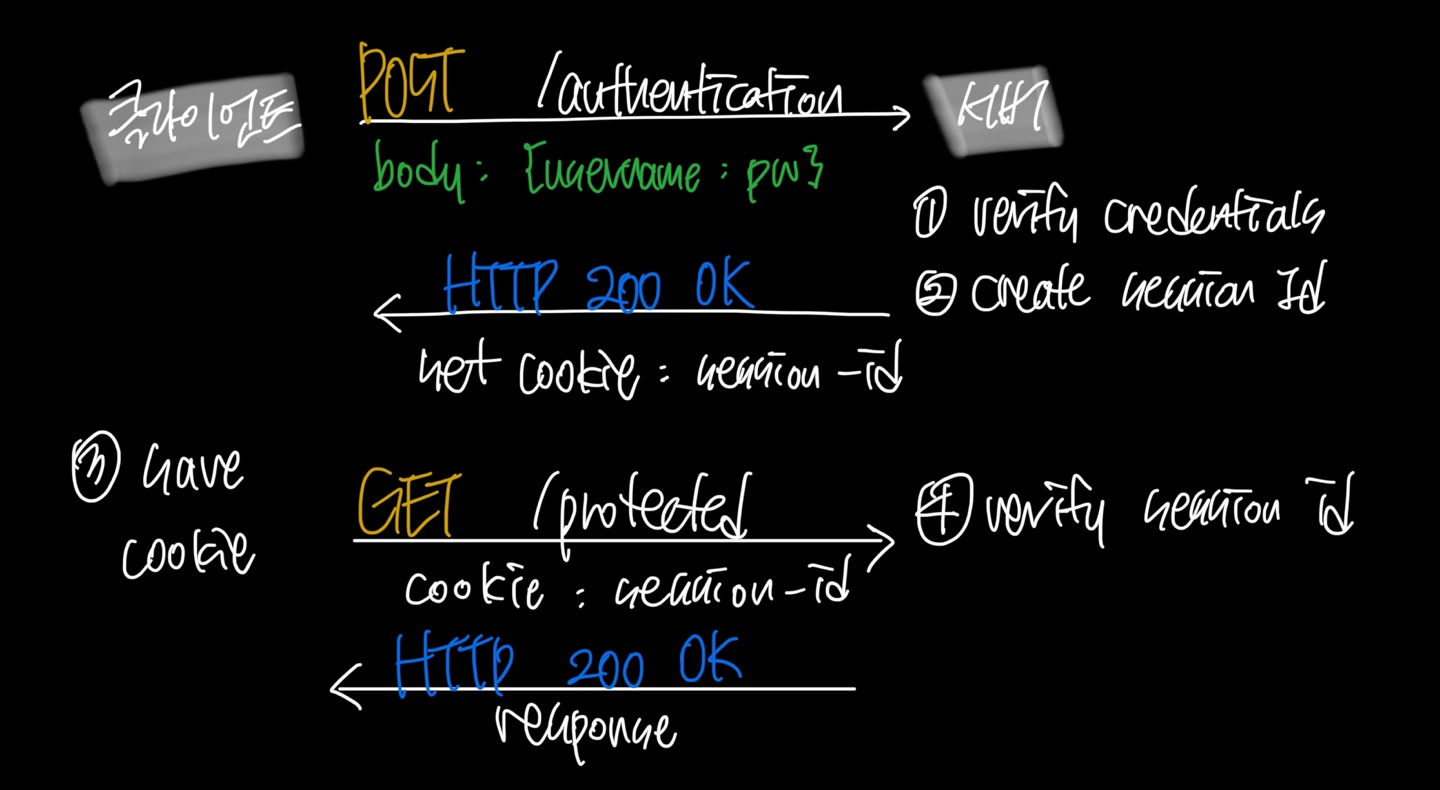 클라이언트
POST /authentication
서버
body : {username : pw}
① verify credentials
② create session Id
HTTP 200 OK
set cookie : session-id
③ save
cookie
GET /protected
④ verify session id
cookie : session-id
HTTP 200 OK
response